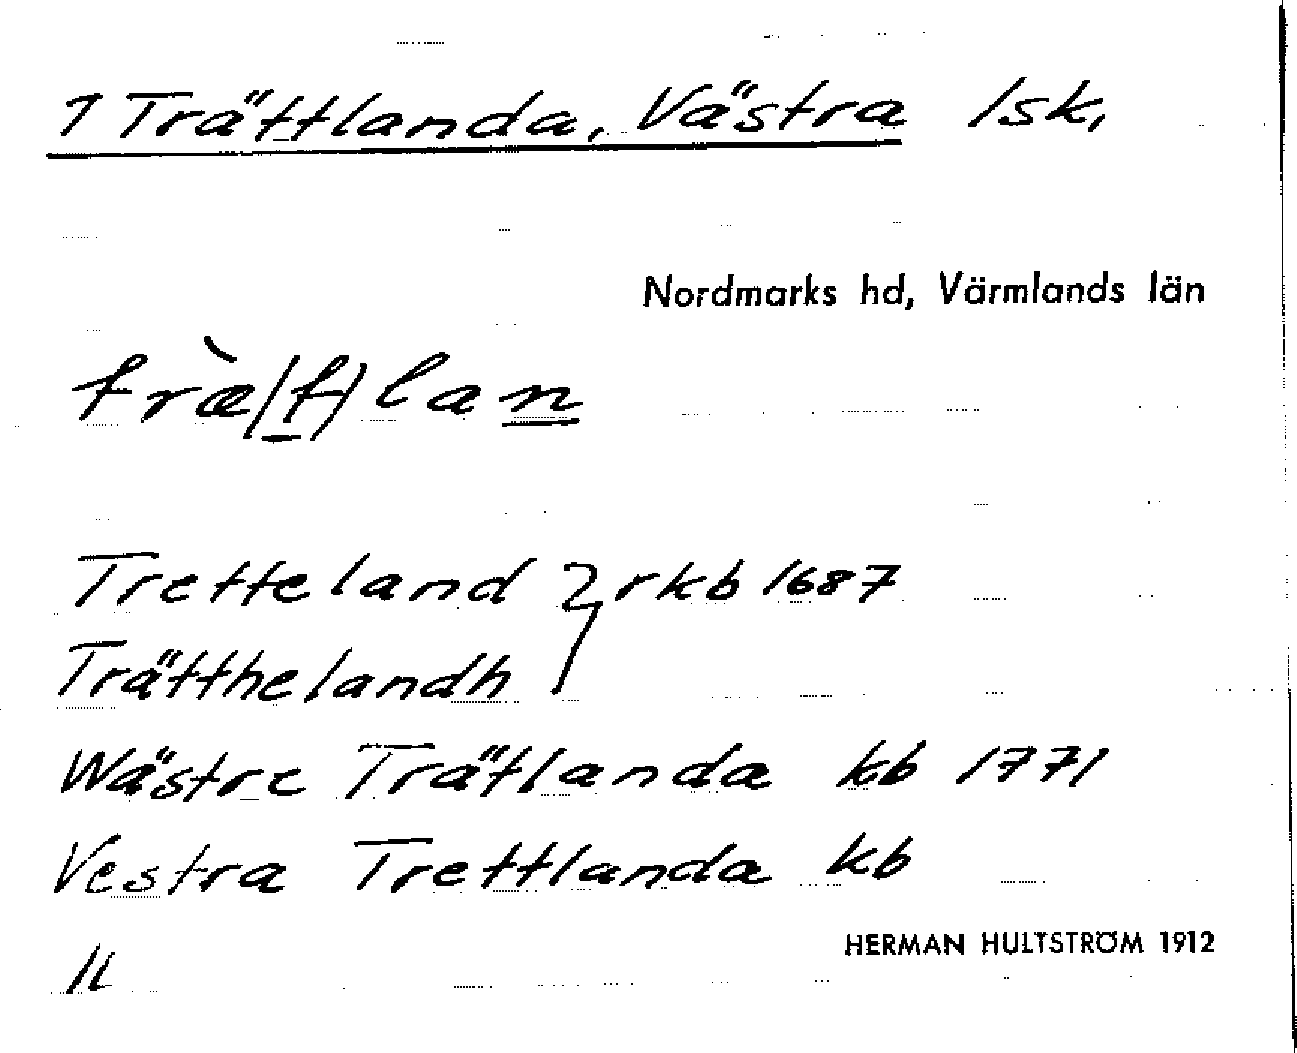 1 Trättlanda, Västra lsk,
Nordmarks hd, Värmlands län
træ̀(t)lan
Tretteland } rkb 1687
Trätthelandh
Wästre Trätlanda kb 1771
Vestra Trettlanda kb
HERMAN HULTSTRÖM 1912